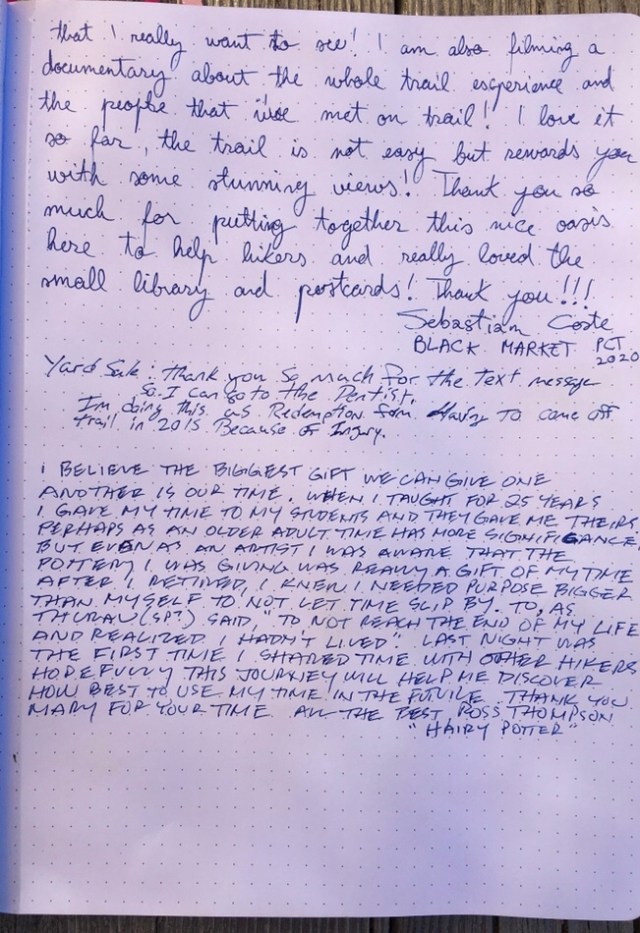 that I really want to see! I am also filming a
documentary about the whole trail experience and
the people that I've met on trail! I love it
so far, the trail is not easy but rewards you
with some stunning views! Thank you so
much for putting together this nice oasis
here to help hikers and really loved the
small library and postcards! Thank you!!!
Sebastian Coste
BLACK MARKET PCT
2020
Yard Sale: Thank you so much for the Text message
So I can go to the Dentist.
I'm doing this as Redemption from Having To come off
trail in 2015 Because of Injury.
I BELIEVE THE BIGGEST GIFT WE CAN GIVE ONE
ANOTHER IS OUR TIME. WHEN I TAUGHT FOR 25 YEARS
I GAVE MY TIME TO MY STUDENTS AND THEY GAVE ME THEIRS
PERHAPS AS AN OLDER ADULT TIME HAS MORE SIGNIFICANCE
BUT EVEN AS AN ARTIST I WAS AWARE THAT THE
POTTERY I WAS GIVING WAS REALLY A GIFT OF MY TIME
AFTER I RETIRED, I KNEW I NEEDED PURPOSE BIGGER
THAN MYSELF TO NOT LET TIME SLIP BY. TO, AS
THURAU (SP?) SAID, "TO NOT REACH THE END OF MY LIFE
AND REALIZED I HADN'T LIVED". LAST NIGHT WAS
THE FIRST TIME I SHARED TIME WITH OTHER HIKERS
HOPEFULLY THIS JOURNEY WILL HELP ME DISCOVER
HOW BEST TO USE MY TIME IN THE FUTURE. THANK YOU
MARY FOR YOUR TIME ALL THE BEST ROSS THOMPSON
"HAIRY POTTER"